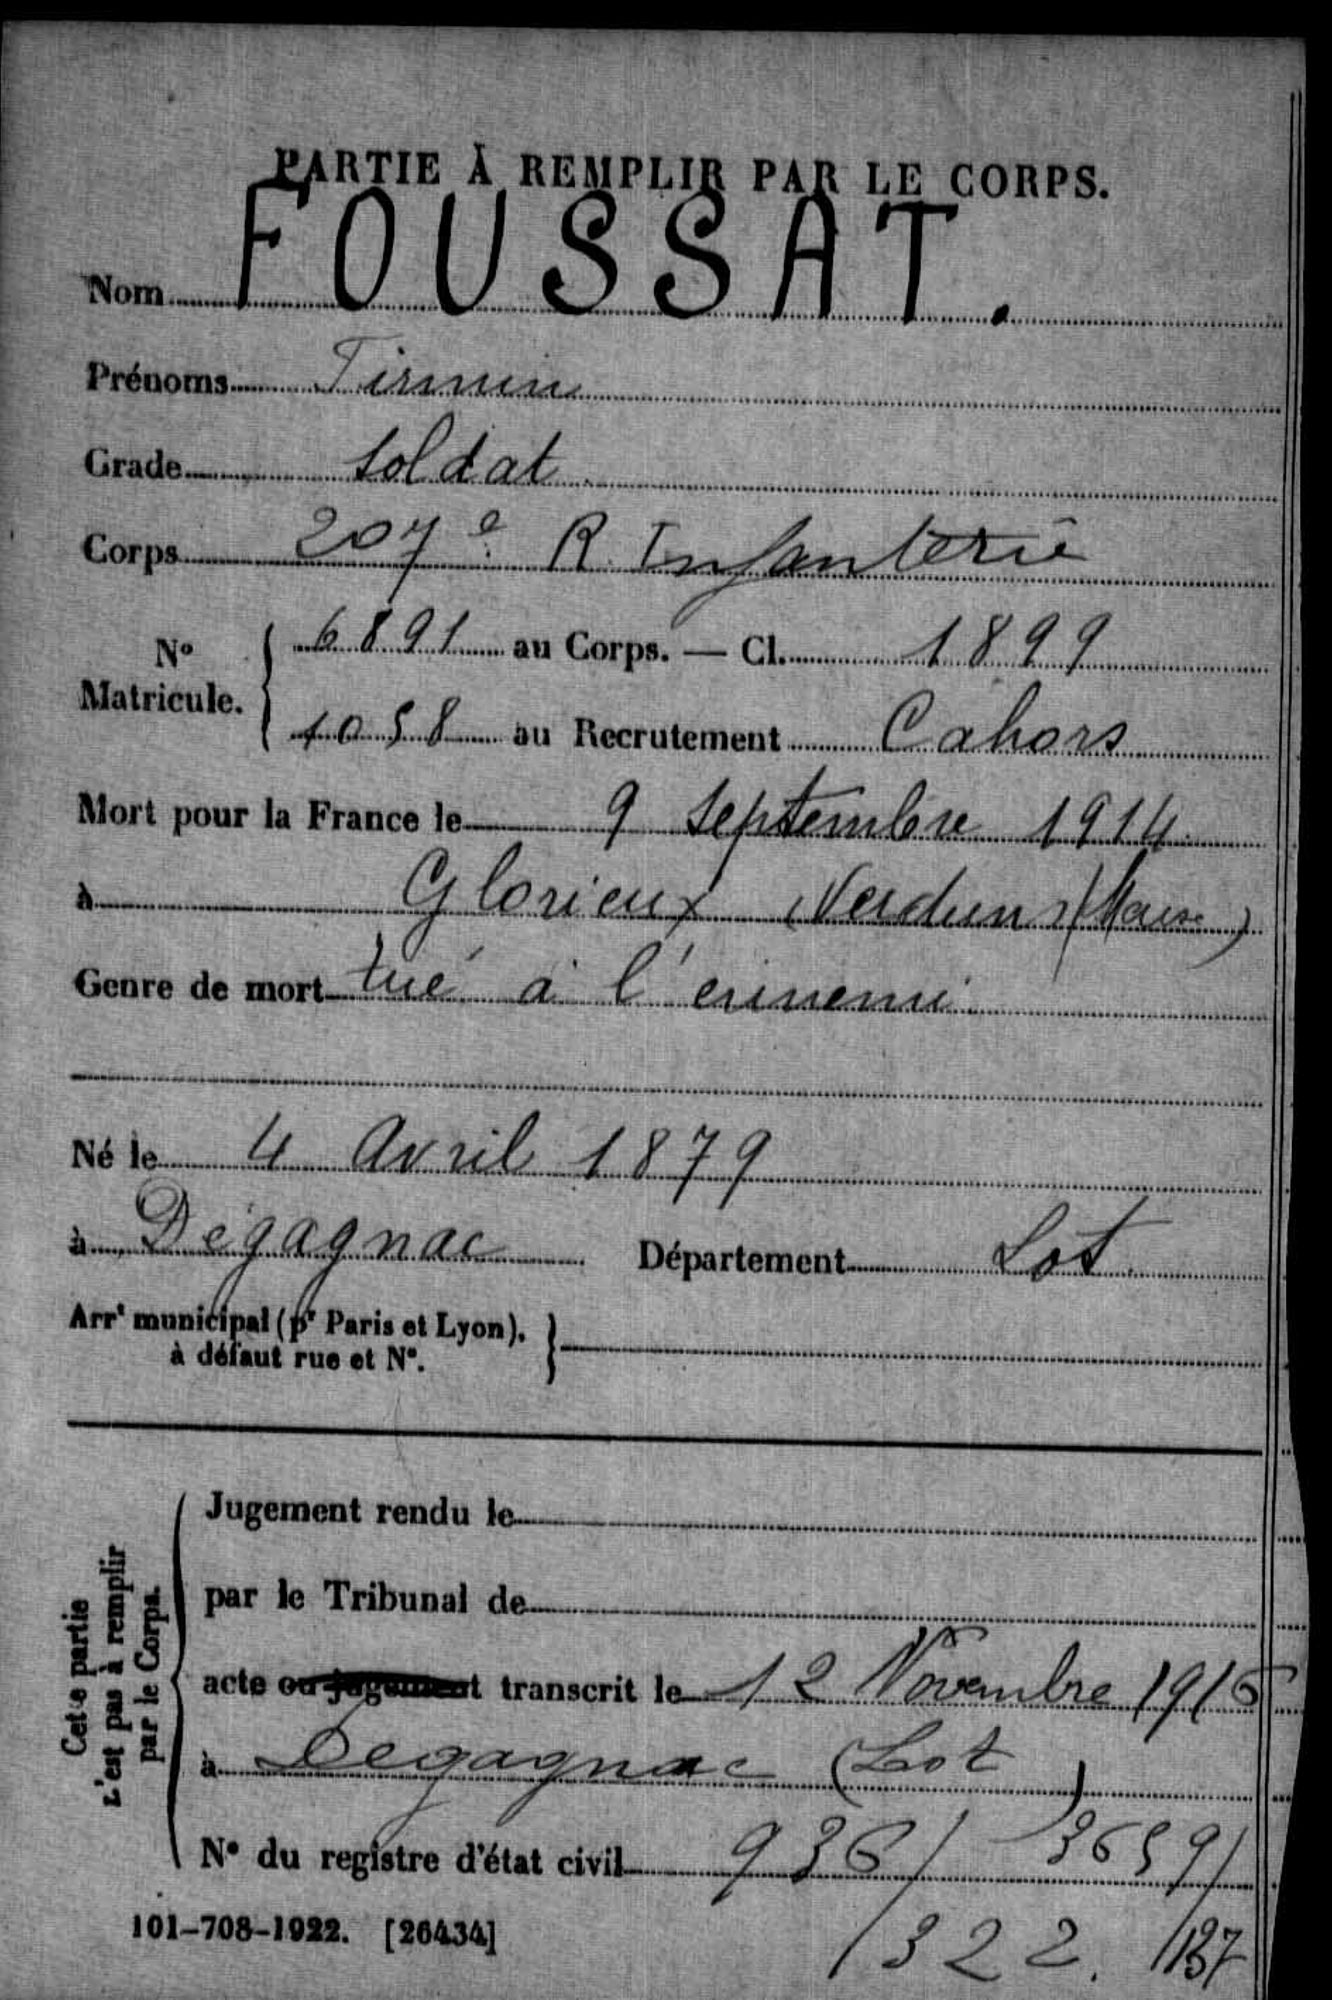 PARTIE À REMPLIR PAR LE CORPS.
Nom FOUSSAT.
Prénoms Firmin
Grade Soldat
Corps 207e R. Infanterie
No Matricule. 6891 au Corps. — Cl. 1899
1058 au Recrutement Cahors
Mort pour la France le 9 Septembre 1914
à Glorieux (Verdun) (Meuse)
Genre de mort tué à l'ennemi
Né le 4 Avril 1879
à Dégagnac Département Lot
Arrt municipal (pr Paris et Lyon),
à défaut rue et No.
Cette partie
n'est pas à remplir
par le Corps.
Jugement rendu le
par le Tribunal de
acte ou jugement transcrit le 12 Novembre 1916
à Degagnac (Lot)
No du registre d'état civil 936/ 3659/
101-708-1922. [26434] /322. /137